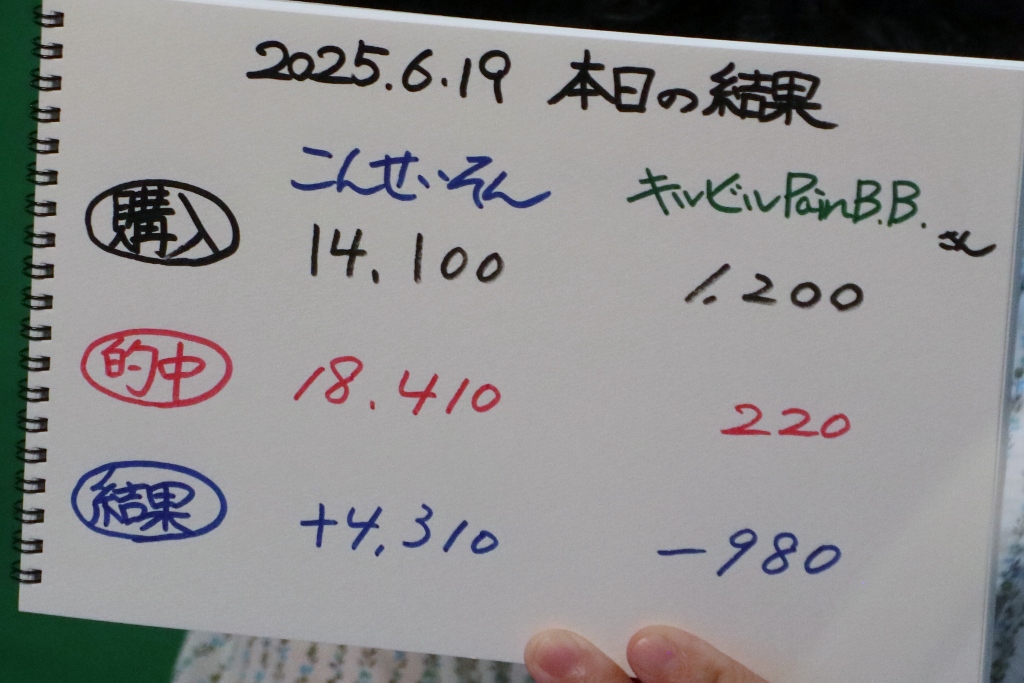 2025.6.19 本日の結果
こんせいそん キルビルPainB.B.さん
購入 14,100 1.200
的中 18.410 220
結果 +4,310 -980